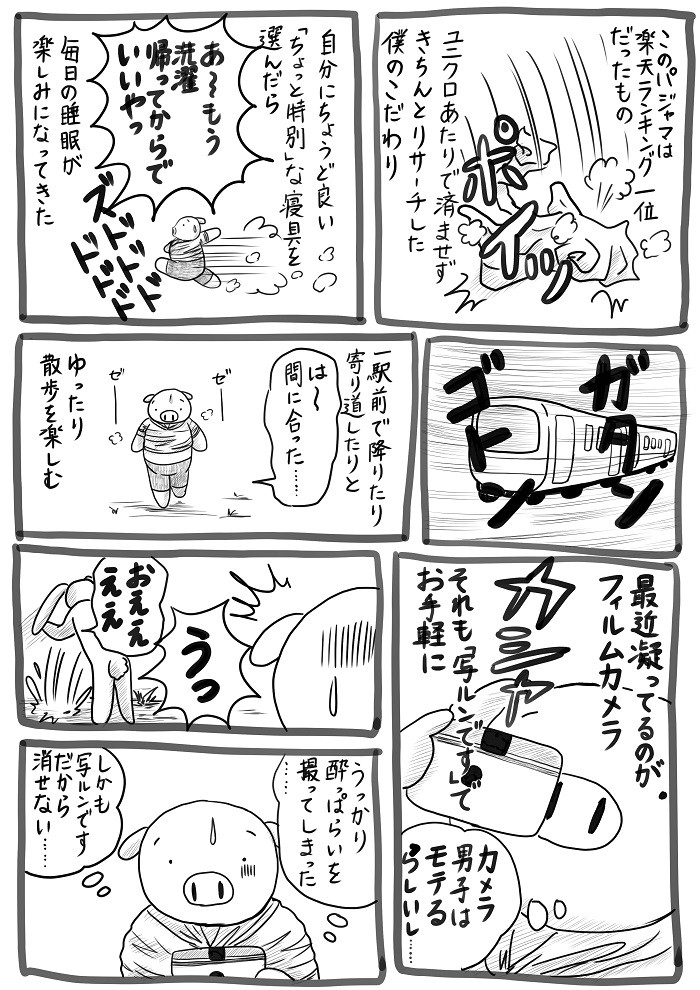 このパジャマは
楽天ランキング一位
だったもの
ポイッ
ユニクロあたりで済ませず
きちんとリサーチした
僕のこだわり
自分にちょうど良い
「ちょっと特別」な寝具を
選んだら
あ〜もう
洗濯
帰ってからで
いいやっ
ズドドドド
ドドド
毎日の睡眠が
楽しみになってきた
ガタン
ゴトン
一駅前で降りたり
寄り道したりと
は〜
間に合った……
ゼーー
ゼーー
ゆったり
散歩を楽しむ
最近凝ってるのが、
フィルムカメラ
カシャ
それも「写ルンです」で
お手軽に
カメラ
男子は
モテる
らしいし……
うっ
おええ
ええ
うっかり
酔っぱらいを
撮ってしまった
……
しかも
写ルンです
だから
消せない……